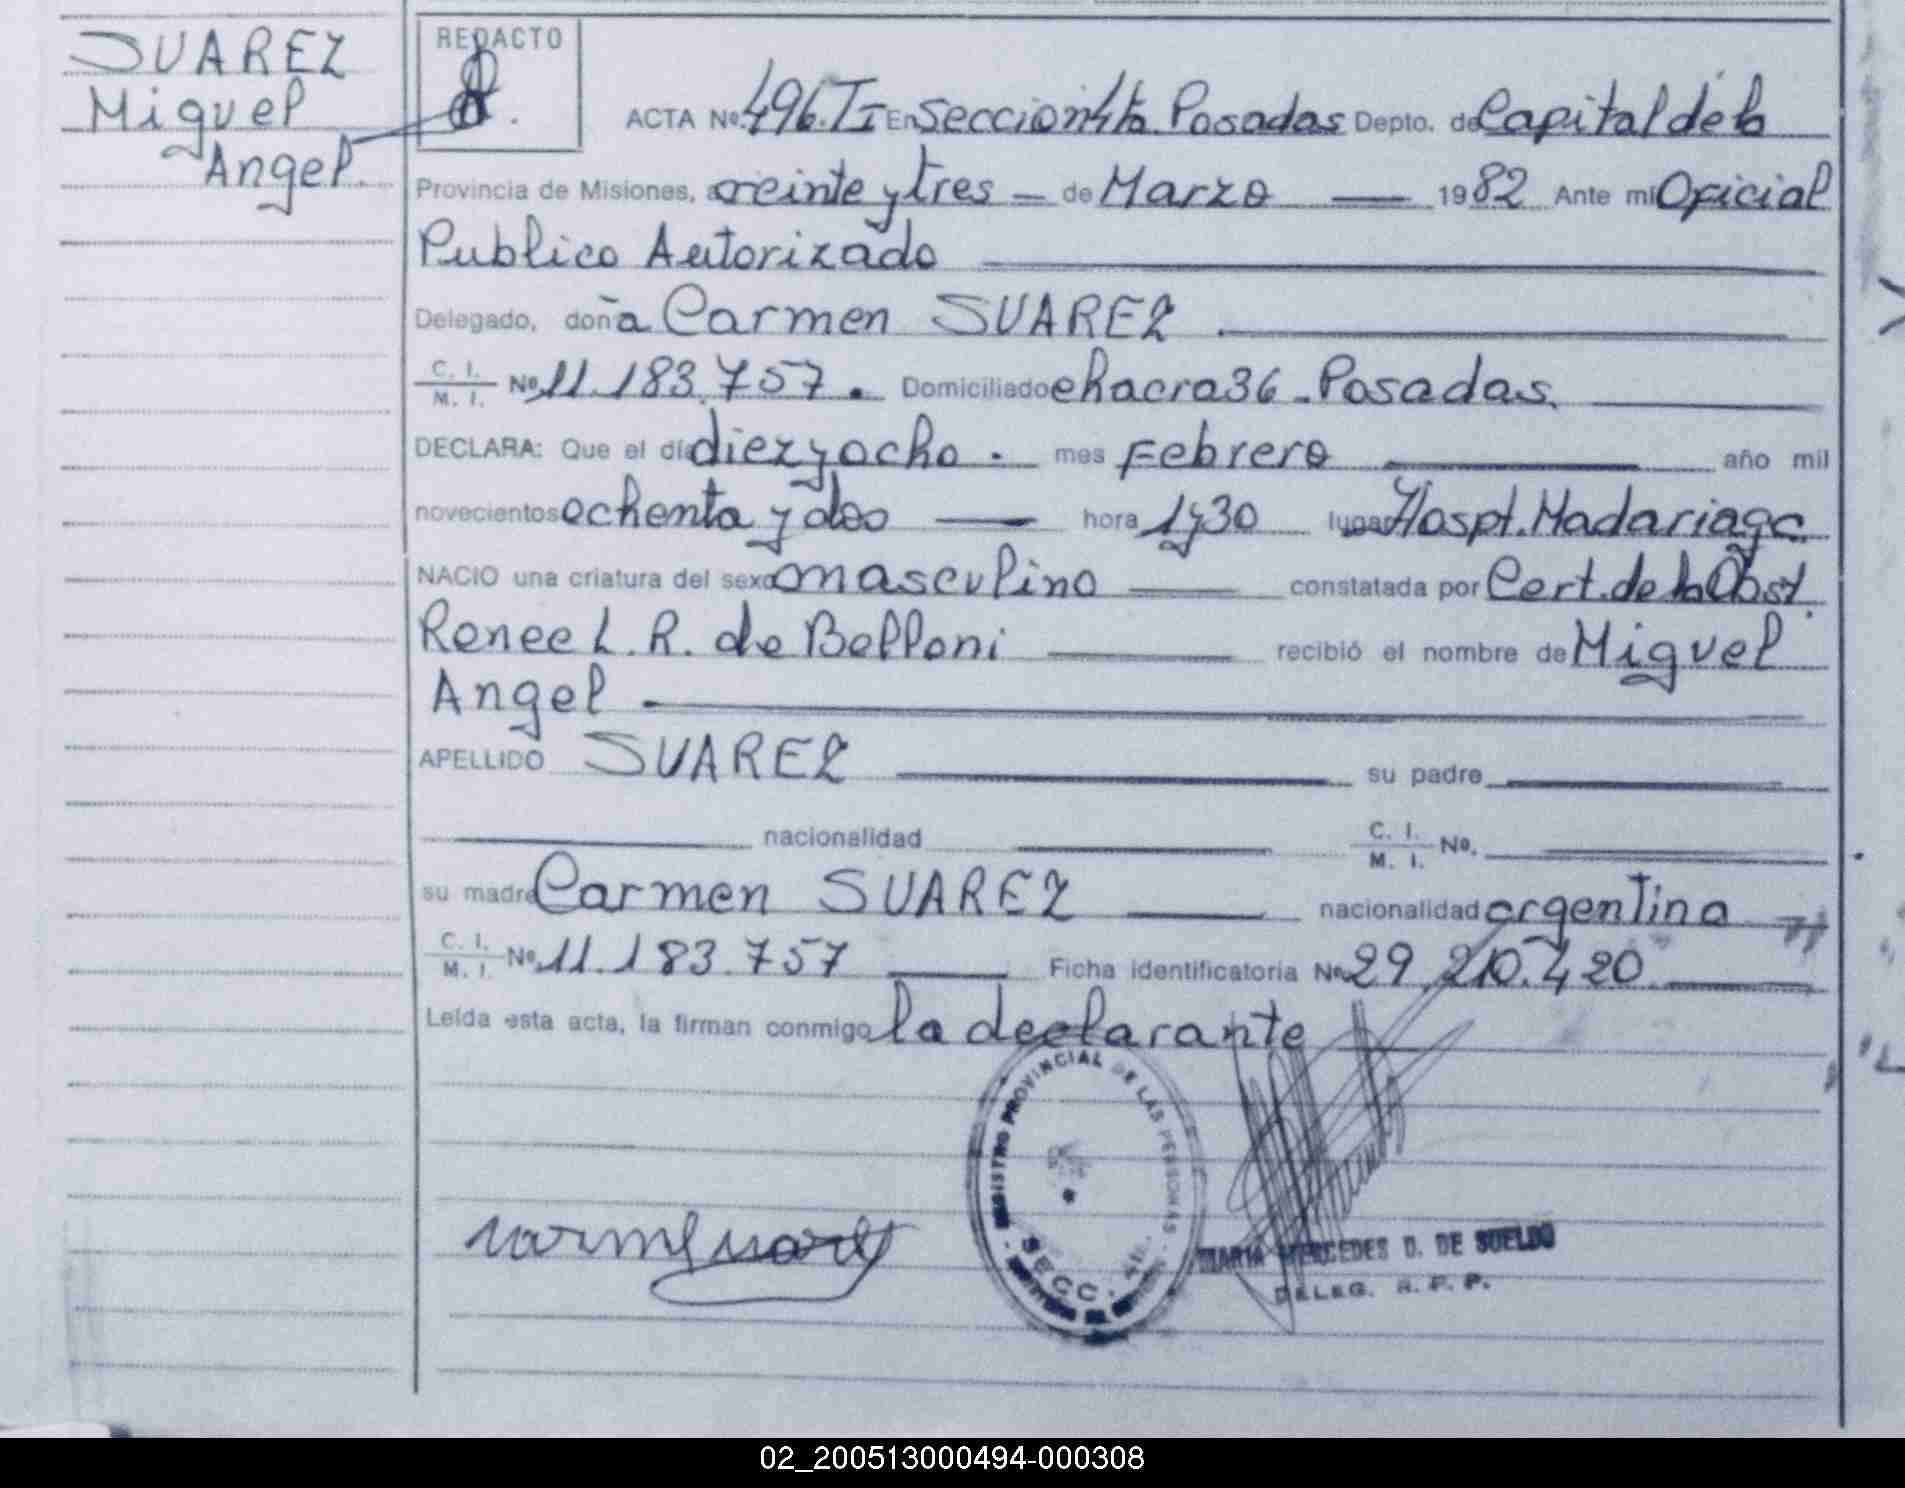 SUAREZ
Miguel
Angel.
REDACTO
ACTA Nº 496.TI En Sección 4ta Posadas Depto. de Capital de la
Provincia de Misiones, a veinte y tres — de Marzo — 1982 Ante mi Oficial
Publico Autorizado
Delegado, doña Carmen SUAREZ
C. I.
M. I. Nº 11.183.757. Domiciliado chacra 36 - Posadas.
DECLARA: Que el día diez y ocho. mes Febrero año mil
novecientos ochenta y dos — hora 1y30 lugar Hospt. Madariaga.
NACIO una criatura del sexo masculino — constatada por Cert. de la Obst.
Renee L. R. de Belloni — recibió el nombre de Miguel
Angel
APELLIDO SUAREZ su padre
nacionalidad C. I.
M. I. Nº.
su madre Carmen SUAREZ — nacionalidad argentina
C. I.
M. I. Nº 11.183.757 — Ficha identificatoria Nº 29.210.420
Leída esta acta, la firman conmigo la declarante
REGISTRO PROVINCIAL DE LAS PERSONAS
SECC. 4ta.
MARIA MERCEDES D. DE SUELDO
DELEG. R. P. P.
02_200513000494-000308